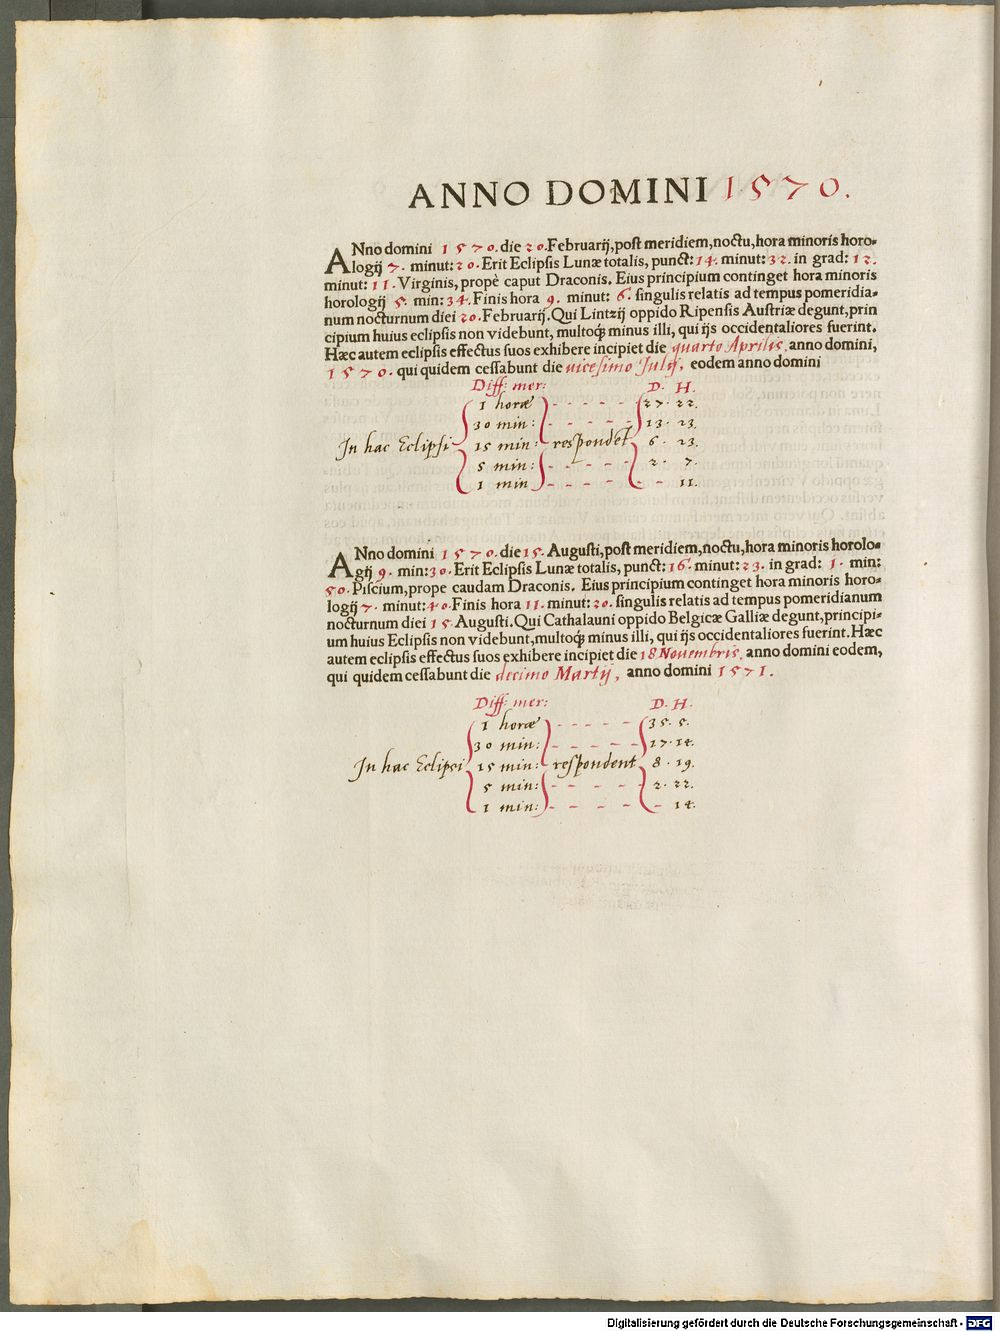 ANNO DOMINI 1570.
ANno domini 1570. die 20. Februarij, post meridiem, noctu, hora minoris horo-
logij 7. minut: 20. Erit Eclipsis Lunæ totalis, punct: 14. minut: 32. in grad: 12.
minut: 11. Virginis, propè caput Draconis. Eius principium continget hora minoris
horologij 5. min: 34. Finis hora 9. minut: 6. singulis relatis ad tempus pomeridia-
num nocturnum diei 20. Februarij. Qui Lintzij oppido Ripensis Austriæ degunt, prin
cipium huius eclipsis non videbunt, multoq́ minus illi, qui ijs occidentaliores fuerint.
Hæc autem eclipsis effectus suos exhibere incipiet die quarto Aprilis, anno domini,
1570. qui quidem cessabunt die uicesimo Julij, eodem anno domini
Diff: mer: D. H.
1 horæ - - - - - 27. 22.
30 min: - - - - 13. 23.
In hac Eclipsi 15 min: respondet 6. 23.
5 min: - - - - 2. 7.
1 min - - - - - 11.
ANno domini 1570. die 15. Augusti, post meridiem, noctu, hora minoris horolo-
gij 9. min: 30. Erit Eclipsis Lunæ totalis, punct: 16. minut: 23. in grad: 1. min:
50. Piscium, prope caudam Draconis. Eius principium continget hora minoris horo-
logij 7. minut: 40. Finis hora 11. minut: 20. singulis relatis ad tempus pomeridianum
nocturnum diei 15. Augusti. Qui Cathalauni oppido Belgicæ Galliæ degunt, principi-
um huius Eclipsis non videbunt, multoq́ minus illi, qui ijs occidentaliores fuerint. Hæc
autem eclipsis effectus suos exhibere incipiet die 18 Novembris, anno domini eodem,
qui quidem cessabunt die decimo Martij, anno domini 1571.
Diff: mer: D. H.
1 horæ - - - - 35. 5.
30 min: - - - - 17. 14.
In hac Eclipsi 15 min: respondent 8. 19.
5 min: - - - - 2. 22.
1 min: - - - - - 14.
Digitalisierung gefördert durch die Deutsche Forschungsgemeinschaft - DFG